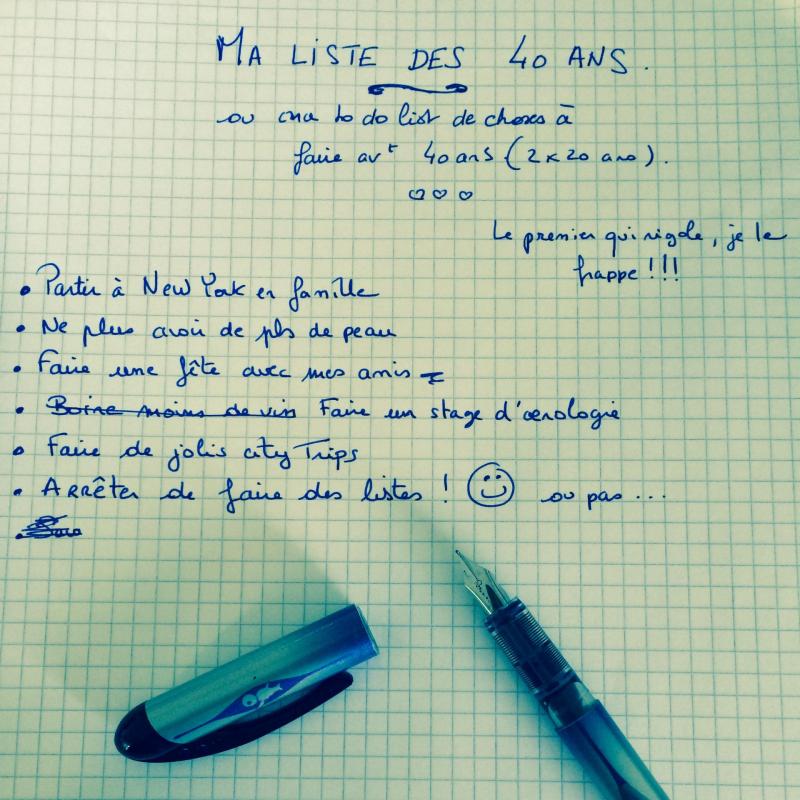 MA LISTE DES 40 ANS.
ou ma to do list de choses à
faire avt 40 ans (2x20 ans).
♡♡♡
Le premier qui rigole, je le
frappe !!!
• Partir à New York en famille
• Ne plus avoir de pbs de peau
• Faire une fête avec mes amis
• Boire moins de vin Faire un stage d'œnologie
• Faire de jolis city Trips
• ARRêter de faire des listes ! ☺ ou pas ...
•